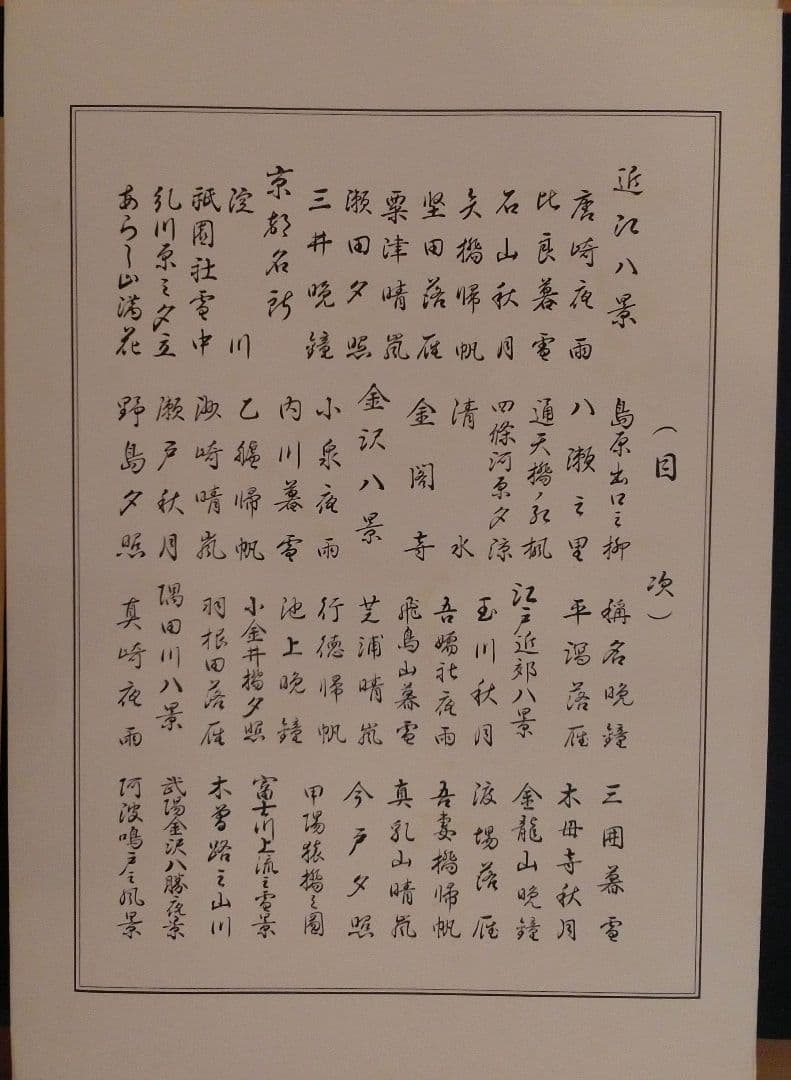 (目次)
近江八景
唐崎夜雨
比良暮雪
石山秋月
矢橋帰帆
堅田落雁
粟津晴嵐
瀬田夕照
三井晩鐘
京都名所
淀川
祇園社雪中
糺川原之夕立
あらし山満花
島原出口之柳
八瀬之里
通天橋ノ紅楓
四條河原夕涼
清水
金閣寺
金沢八景
小泉夜雨
内川暮雪
乙艫帰帆
洲崎晴嵐
瀬戸秋月
野島夕照
稱名晩鐘
平潟落雁
江戸近郊八景
玉川秋月
吾嬬社夜雨
飛鳥山暮雪
芝浦晴嵐
行徳帰帆
池上晩鐘
小金井橋夕照
羽根田落雁
隅田川八景
真崎夜雨
三囲暮雪
木母寺秋月
金龍山晩鐘
渡場落雁
吾妻橋帰帆
真乳山晴嵐
今戸夕照
甲陽猿橋之図
富士川上流之雪景
木曽路之山川
武陽金沢八勝夜景
阿波鳴戸之風景